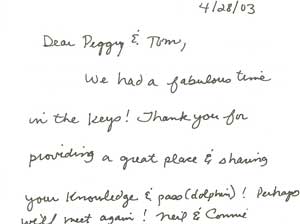 4/28/03
Dear Peggy & Tom,
We had a fabulous time
in the Keys! Thank you for
providing a great place & sharing
your knowledge & pass (dolphin)! Perhaps
we'll meet again! Neil & Connie